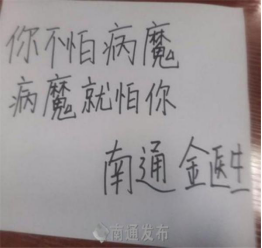 你不怕病魔
病魔就怕你
南通 金医生
南通发布